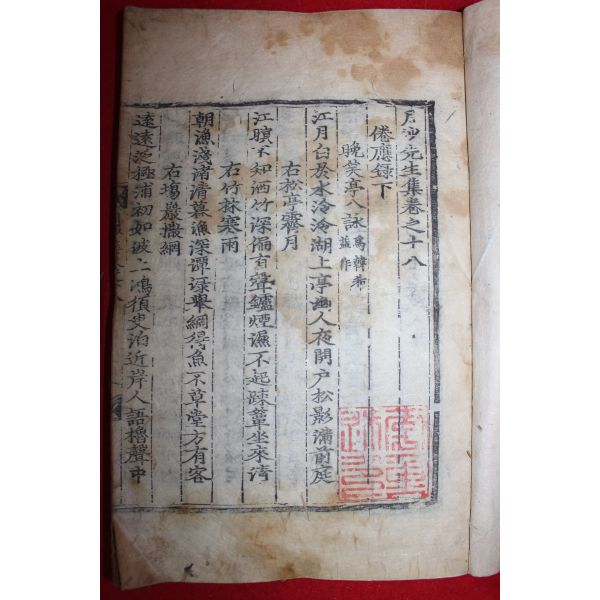 月沙先生集卷之十八
倦應錄下
晚笑亭八詠 爲韓希益作
江月白於水泠泠湖上亭幽人夜開戶松影滿前庭
右松亭霽月
江暝不知洒竹深偏有聲鑪煙濕不起踈簟坐來淸
右竹林寒雨
朝漁淺渚清暮漁深潭淥舉網得魚不草堂方有客
右塲巖撒網
遠遠泛極浦初如波上鴻損史泊近岸人語櫓聲中